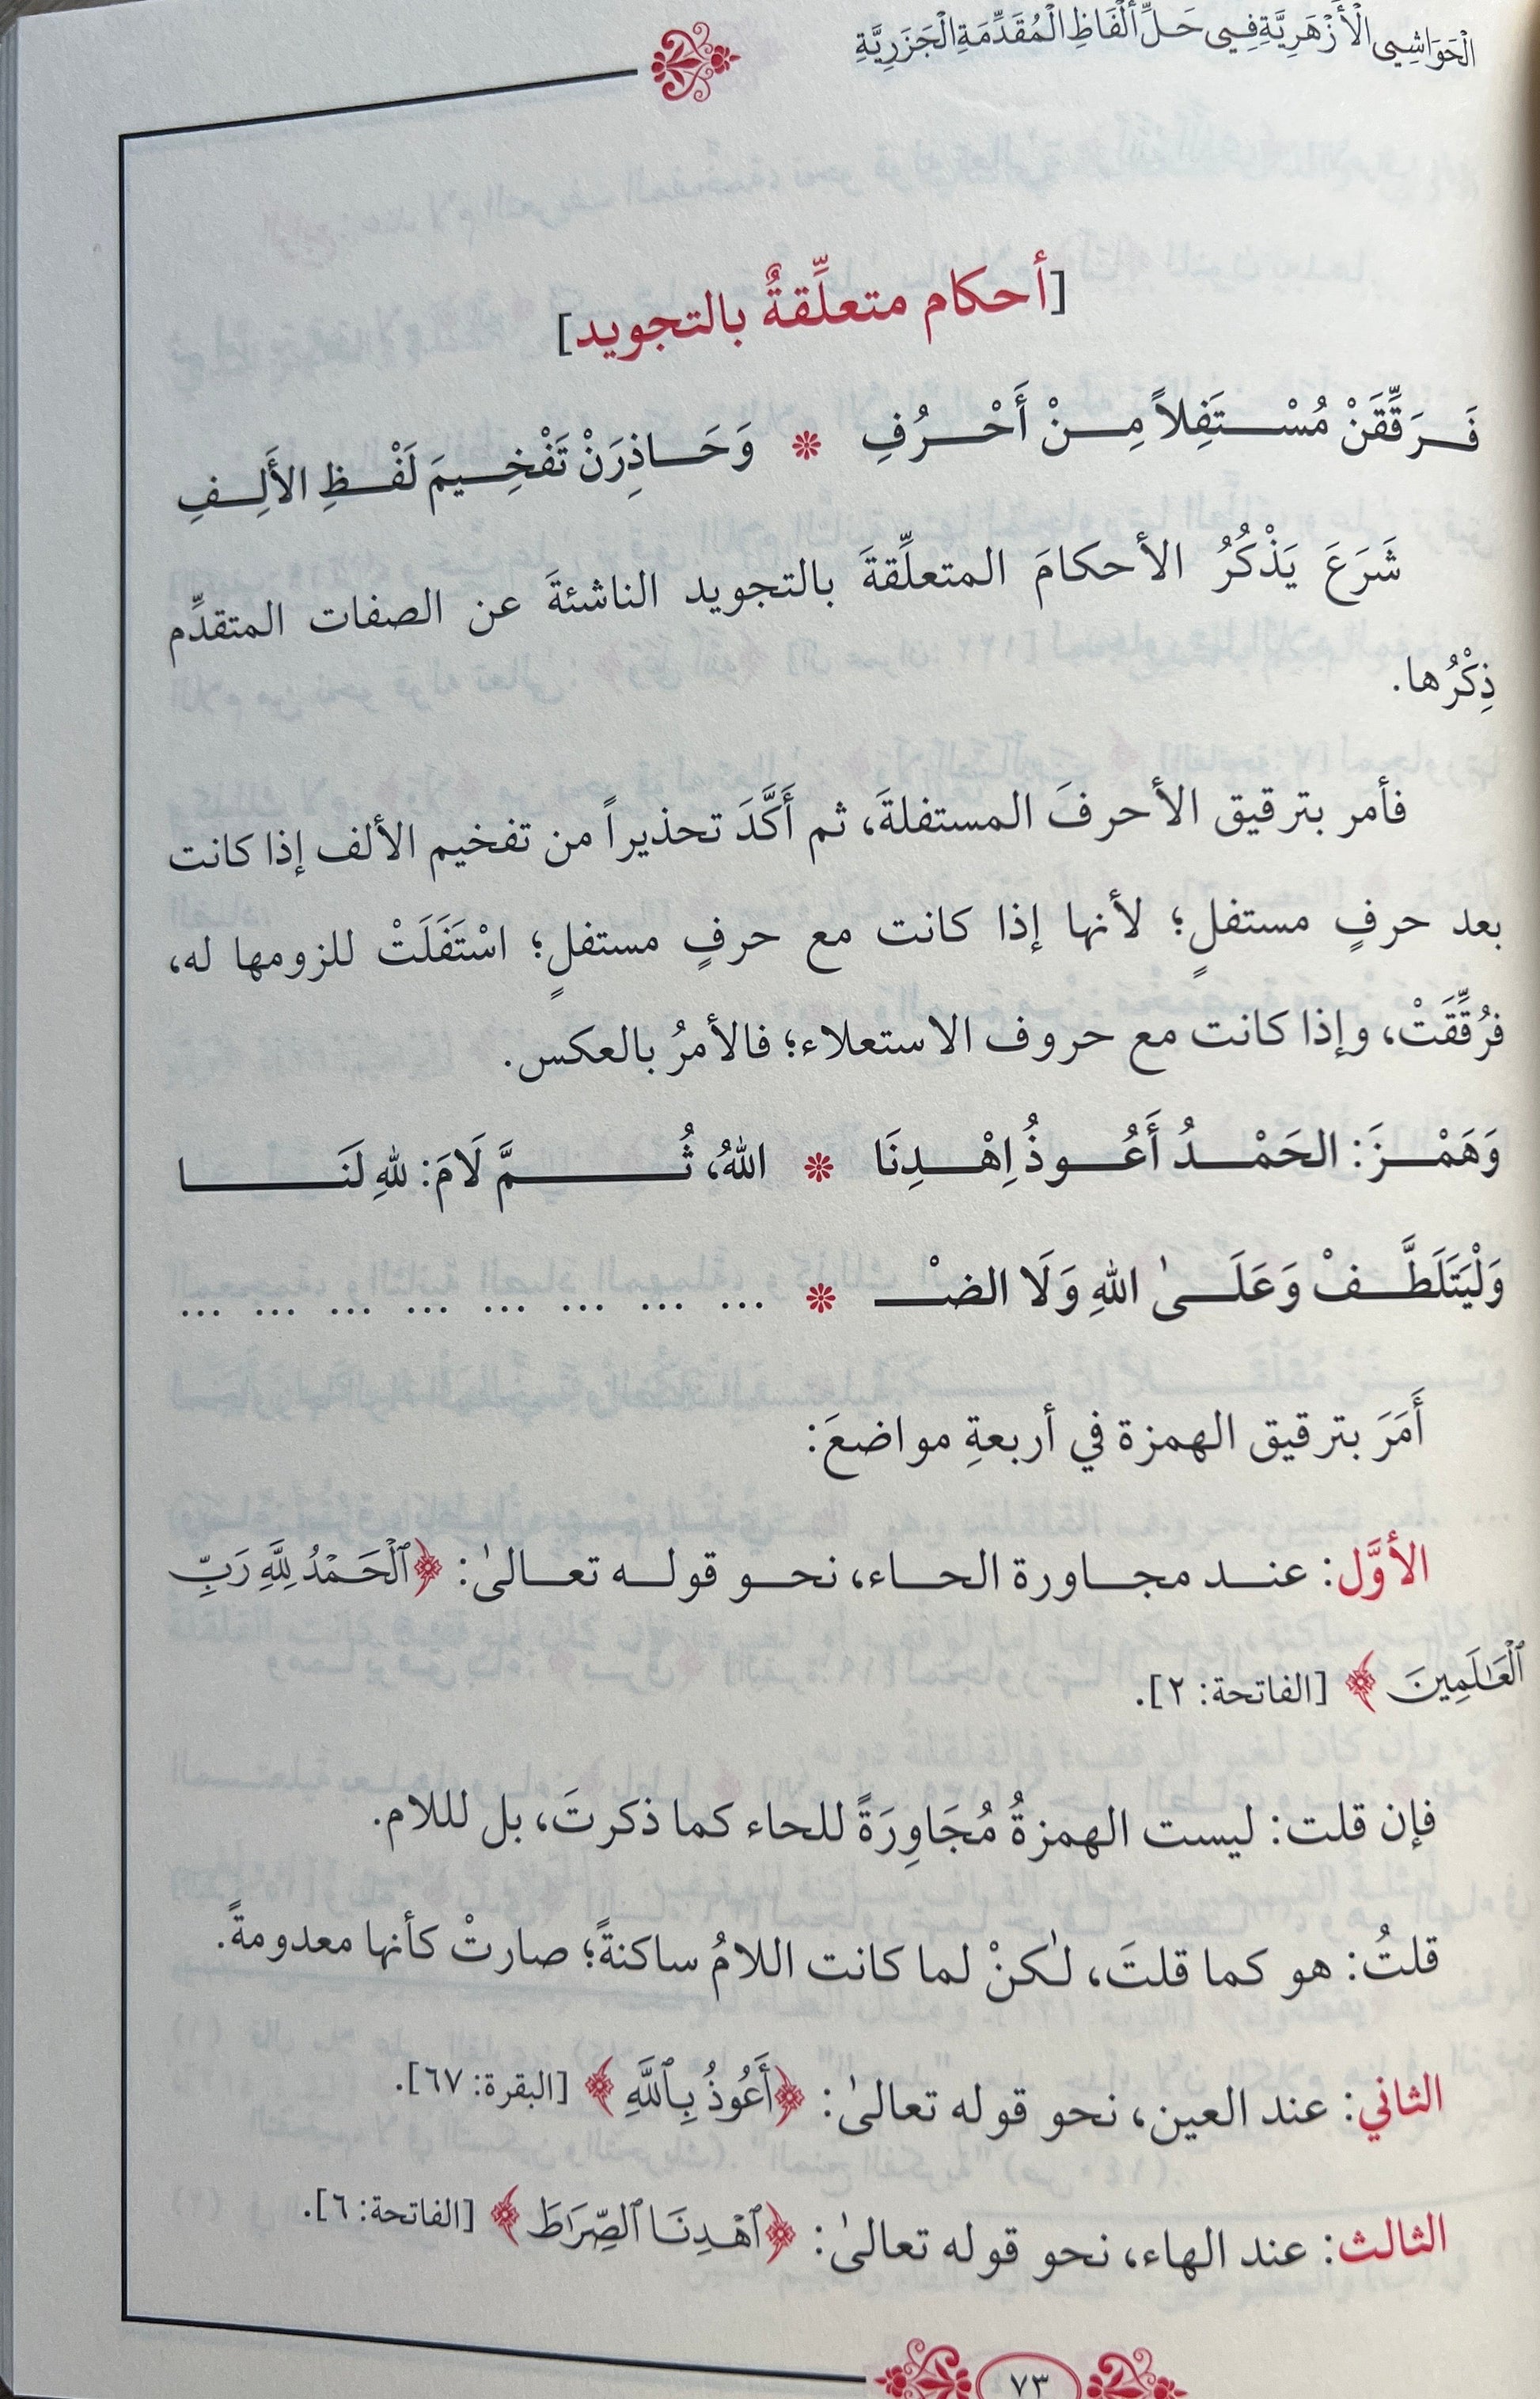 الْحَوَاشِي الْأَزْهَرِيَّةِ فِي حَلِّ أَلْفَاظِ الْمُقَدِّمَةِ الْجَزَرِيَّةِ
[أحكام متعلِّقةٌ بالتجويد]
فَرَقِّقَنْ مُسْتَفِلاً مِنْ أَحْرُفِ ❊ وَحَاذِرَنْ تَفْخِيمَ لَفْظِ الأَلِفِ
شَرَعَ يَذْكُرُ الأحكامَ المتعلِّقةَ بالتجويد الناشئةَ عن الصفات المتقدِّم
ذِكْرُها.
فأمر بترقيق الأحرفَ المستفلةَ، ثم أَكَّدَ تحذيراً من تفخيم الألف إذا كانت
بعد حرفٍ مستفلٍ؛ لأنها إذا كانت مع حرفٍ مستفلٍ؛ اسْتَفَلَتْ للزومها له،
فرُقِّقَتْ، وإذا كانت مع حروف الاستعلاء؛ فالأمرُ بالعكس.
وَهَمْزَ: الحَمْدُ أَعُوذُ اِهْدِنَا ❊ اللهُ، ثُمَّ لَامَ: للهِ لَنَا
وَلْيَتَلَطَّفْ وَعَلَىٰ اللهِ وَلَا الضْ ❊ ... ... ... ... ... ... ... ...
أَمَرَ بترقيق الهمزة في أربعةِ مواضعَ:
الأوَّل: عند مجاورة الحاء، نحو قوله تعالىٰ: ﴿ٱلْحَمْدُ لِلَّهِ رَبِّ
ٱلْعَٰلَمِينَ﴾ [الفاتحة: ٢].
فإن قلت: ليست الهمزةُ مُجَاوِرَةً للحاء كما ذكرتَ، بل لللام.
قلتُ: هو كما قلتَ، لٰكنْ لما كانت اللامُ ساكنةً؛ صارتْ كأنها معدومةً.
الثاني: عند العين، نحو قوله تعالىٰ: ﴿أَعُوذُ بِٱللَّهِ﴾ [البقرة: ٦٧].
الثالث: عند الهاء، نحو قوله تعالىٰ: ﴿ٱهْدِنَا ٱلصِّرَٰطَ﴾ [الفاتحة: ٦].
٧٣